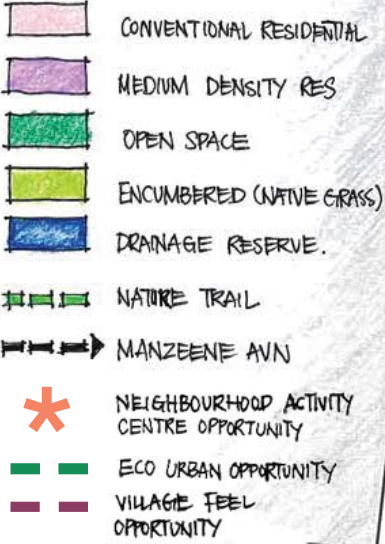 CONVENTIONAL RESIDENTIAL
MEDIUM DENSITY RES
OPEN SPACE
ENCUMBERED (NATIVE GRASS)
DRAINAGE RESERVE.
NATURE TRAIL
MANZEENE AVN
NEIGHBOURHOOD ACTIVITY
CENTRE OPPORTUNITY
ECO URBAN OPPORTUNITY
VILLAGE FEEL
OPPORTUNITY